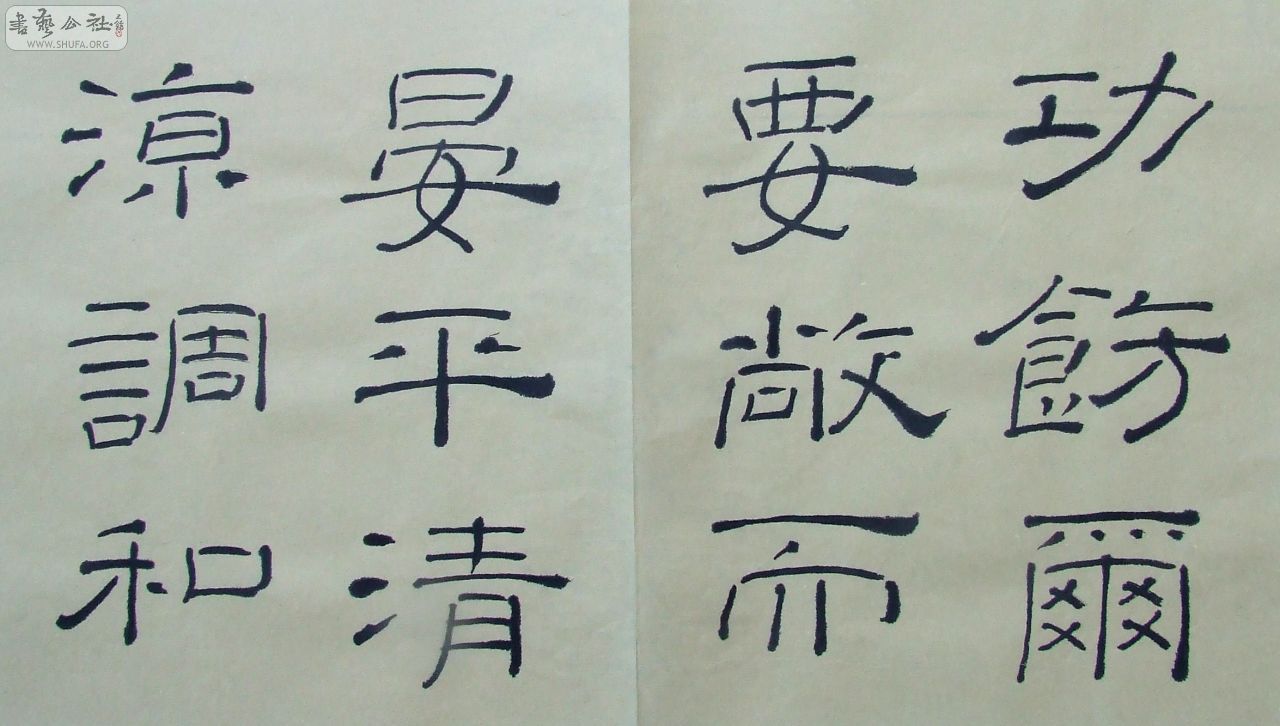 功飭爾
要敞而
晏平清
涼調和
書藝公社
WWW.SHUFA.ORG